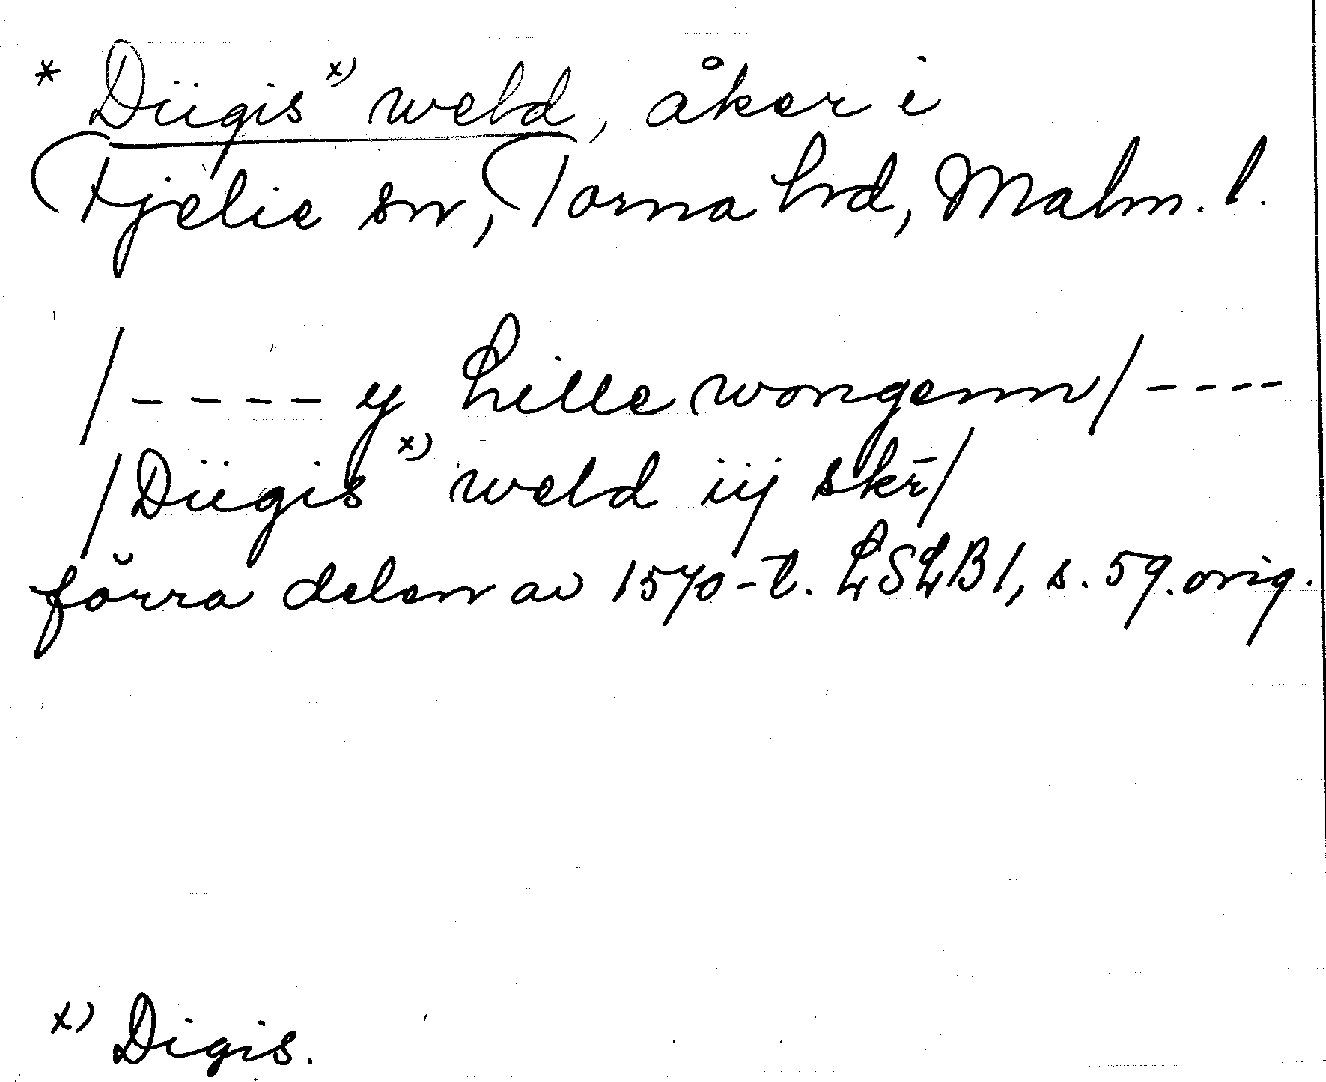 * Diigis ˣ⁾ weld, åker i
Fjelie sn, Torna hd, Malm. l.
/---- y Lille wongenn/----
/Diigis ˣ⁾ weld iij skr̄/
förra delen av 1570-t. LSLB1, s. 59. orig.
ˣ⁾ Digis.